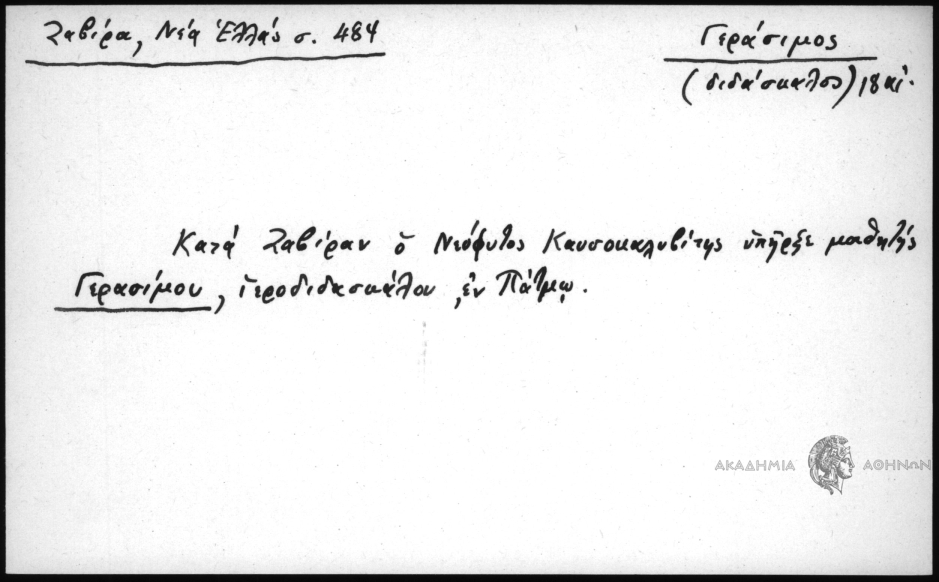 Ζαβίρα, Νέα Ἑλλάς σ. 484
Γεράσιμος
(διδάσκαλος) 18 αἰ.
Κατά Ζαβίραν ὁ Νεόφυτος Καυσοκαλυβίτης ὑπῆρξε μαθητής
Γερασίμου, ἱεροδιδασκάλου ἐν Πάτμῳ.
ΑΚΑΔΗΜΙΑ ΑΘΗΝΩΝ